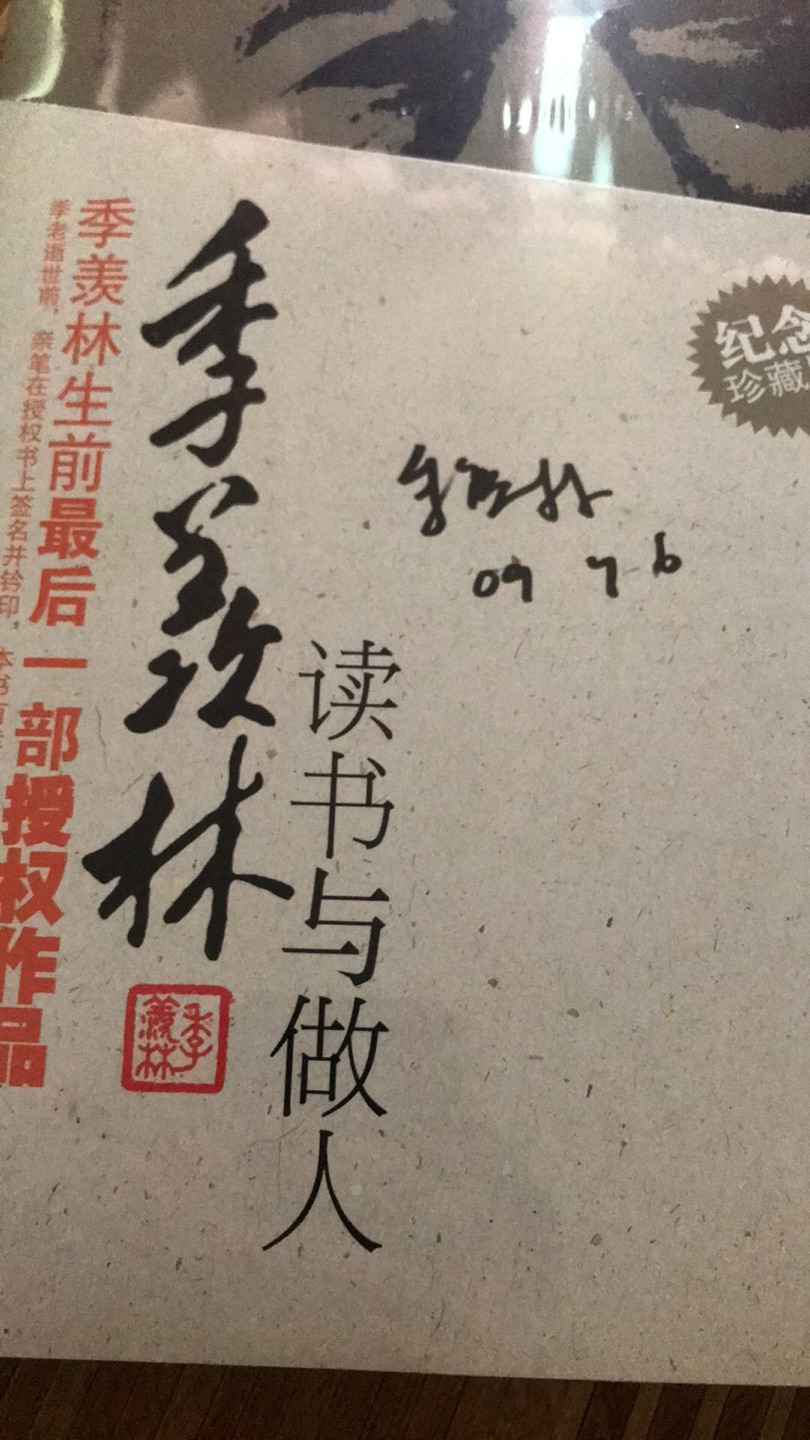 季羡林
读书与做人
季羡林
09 7 6
纪念
珍藏
季羡林生前最后一部授权作品
季老逝世前，亲笔在授权书上签名并钤印，
季羡林